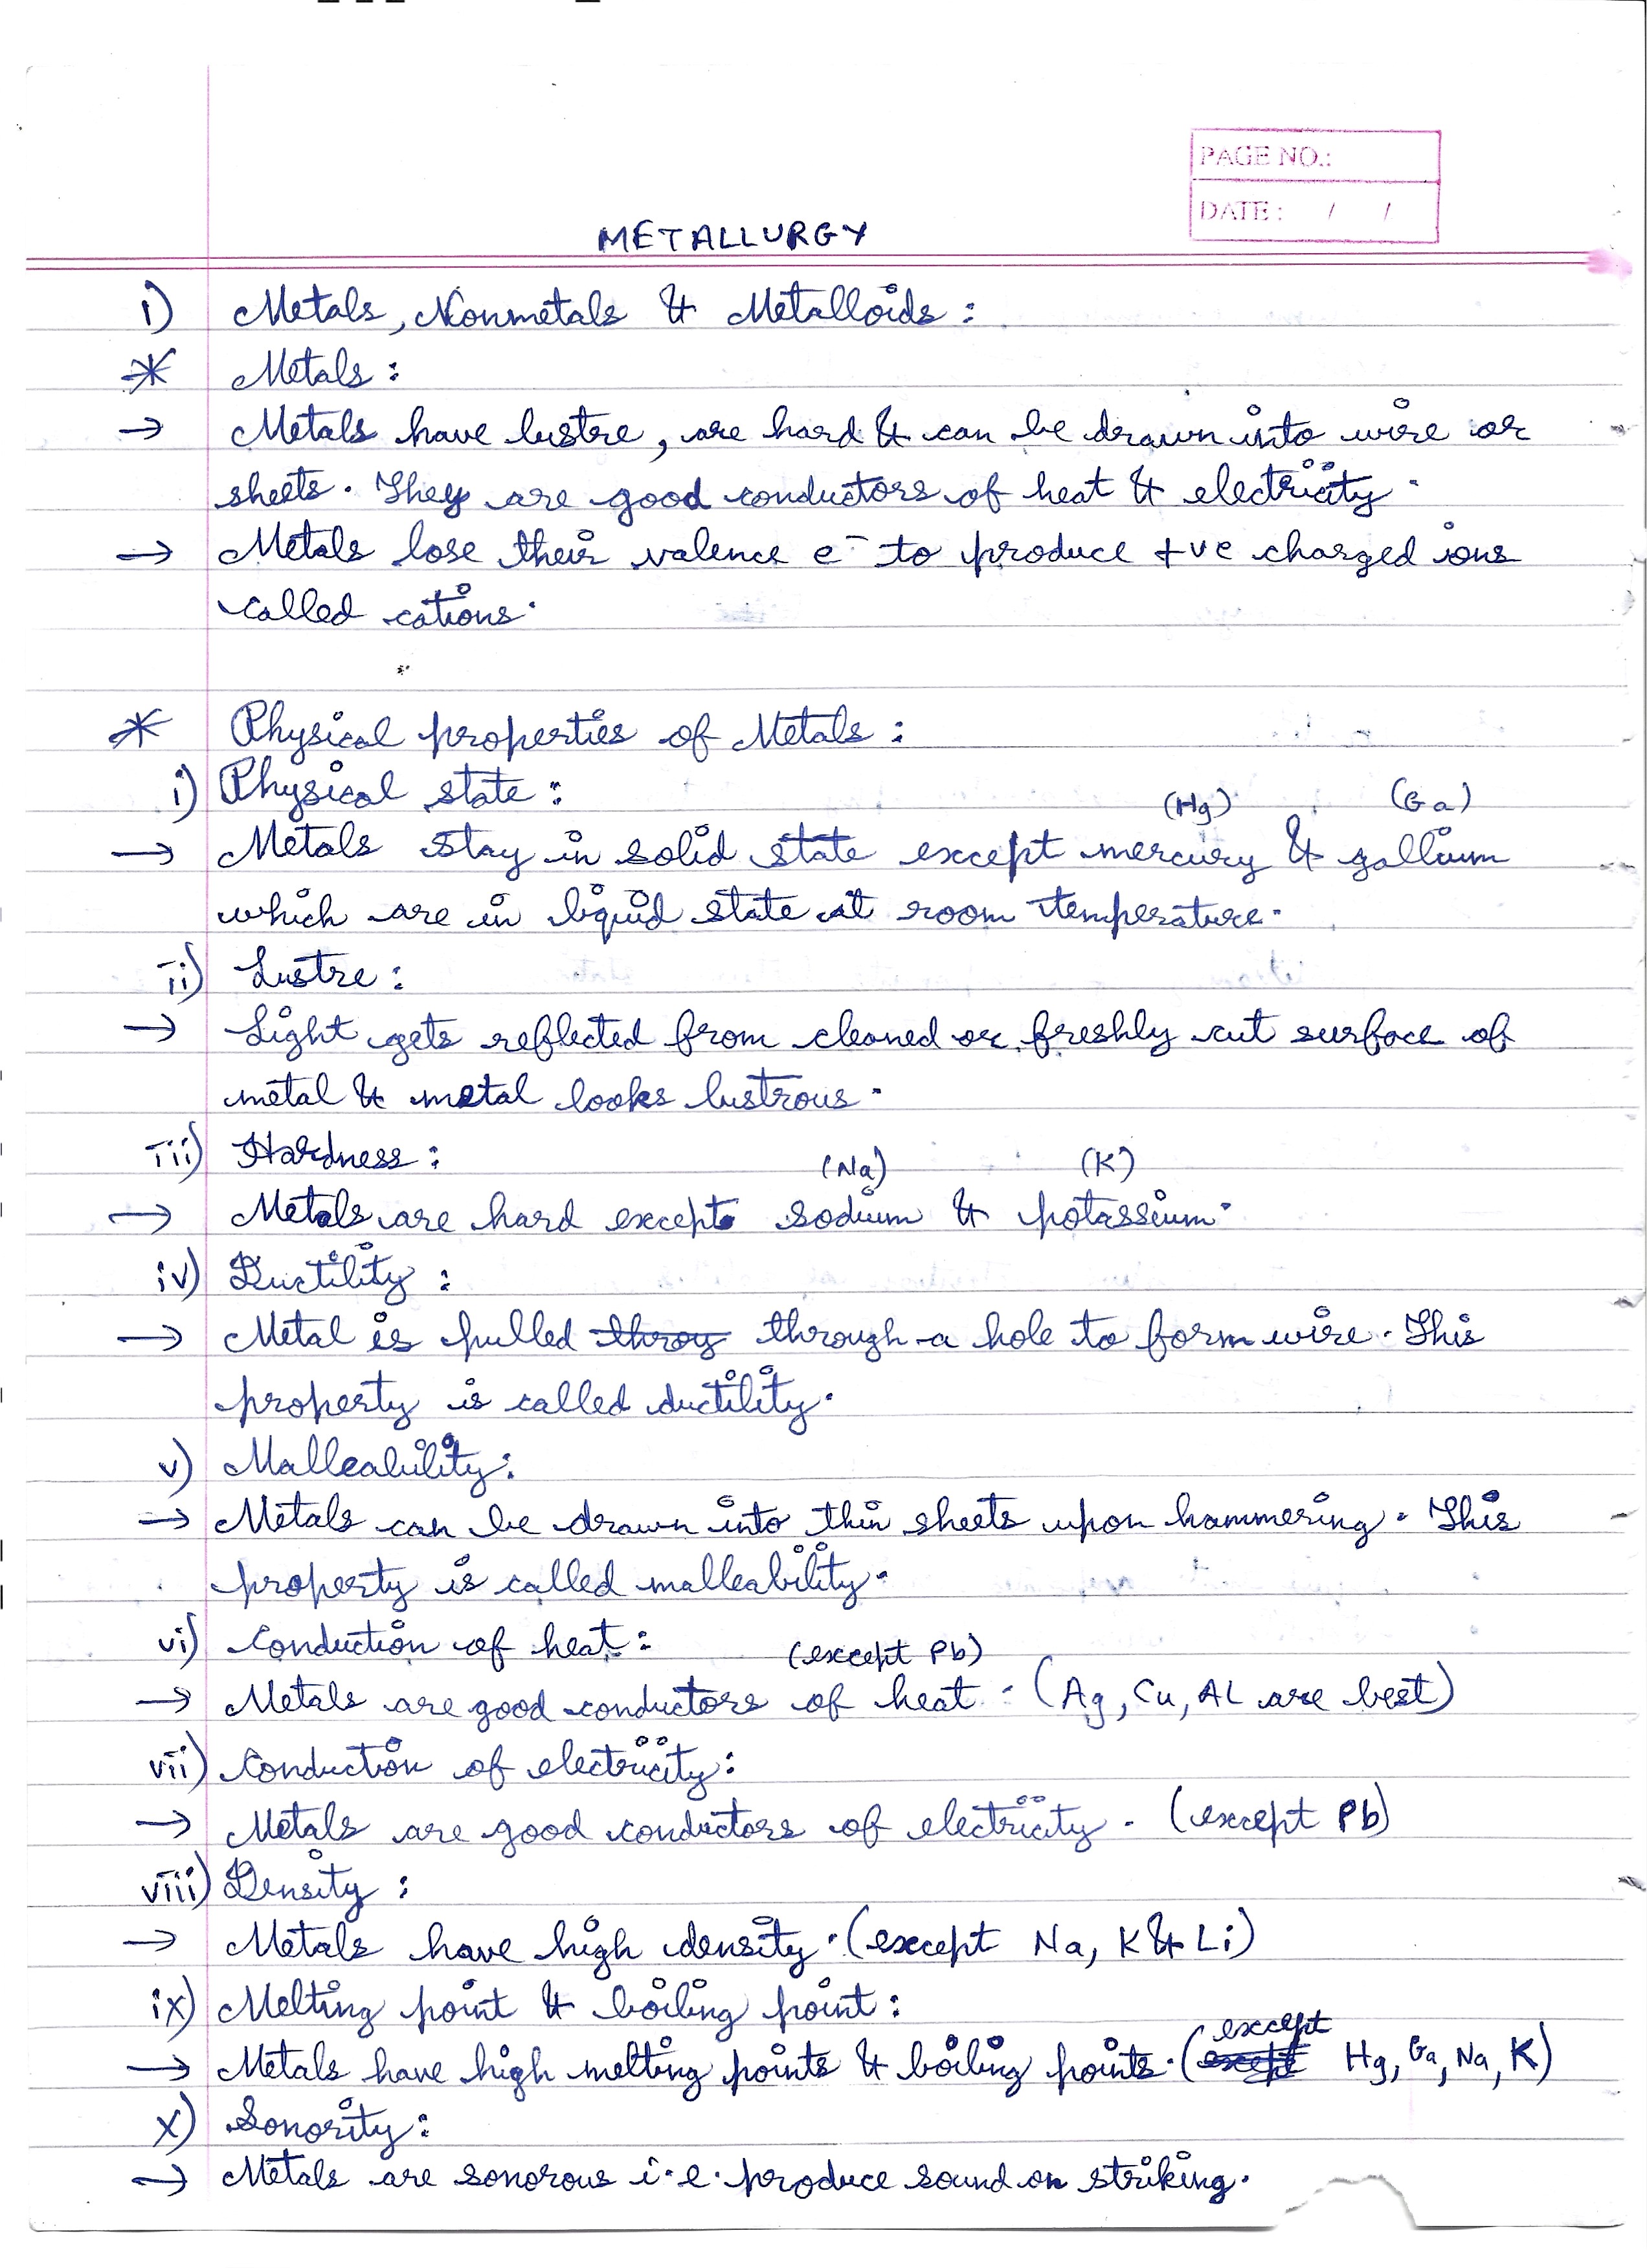 PAGE NO.:
DATE: / /
METALLURGY
1) Metals, Nonmetals & Metalloids:
* Metals:
→ Metals have lustre, are hard & can be drawn into wire or
sheets. They are good conductors of heat & electricity.
→ Metals lose their valence e⁻ to produce +ve charged ions
called cations.
* Physical properties of Metals:
i) Physical state:
(Hg) (Ga)
→ Metals stay in solid state except mercury & gallium
which are in liquid state at room temperature.
ii) Lustre:
→ Light gets reflected from cleaned or freshly cut surface of
metal & metal looks lustrous.
iii) Hardness:
(Na) (K)
→ Metals are hard except sodium & potassium.
iv) Ductility:
→ Metal is pulled throug through a hole to form wire. This
property is called ductility.
v) Malleability:
→ Metals can be drawn into thin sheets upon hammering. This
property is called malleability.
vi) Conduction of heat:
(except Pb)
→ Metals are good conductors of heat. (Ag, Cu, Al are best)
vii) Conduction of electricity:
→ Metals are good conductors of electricity. (except Pb)
viii) Density:
→ Metals have high density. (except Na, K & Li)
ix) Melting point & boiling point:
except
→ Metals have high melting points & boiling points. (except Hg, Ga, Na, K)
x) Sonority:
→ Metals are sonorous i.e. produce sound on striking.